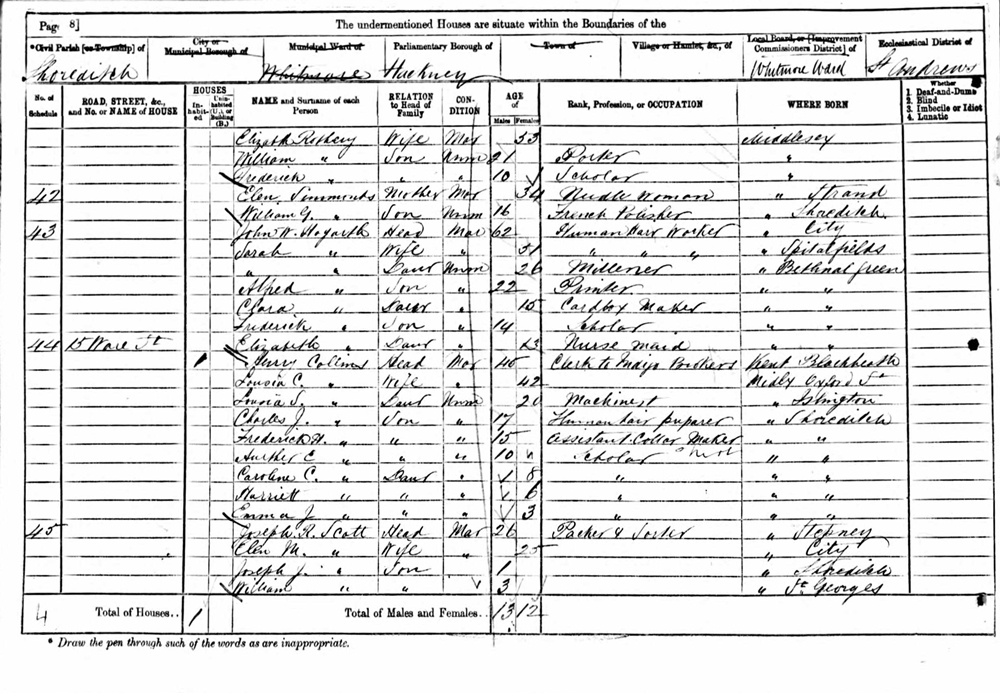 Page 8] The undermentioned Houses are situate within the Boundaries of the
*Civil Parish [or Township] of City or Municipal Borough of Municipal Ward of Parliamentary Borough of Town of Village or Hamlet, &c., of Local Board, or [Improvement Commissioners District] of Ecclesiastical District of
Shoreditch Whitmore Hackney Whitmore Ward St Andrews
No. of Schedule ROAD, STREET, &c., and No. or NAME of HOUSE HOUSES In-habited Unin-habited (U.), or Building (B.) NAME and Surname of each Person RELATION to Head of Family CON-DITION AGE of Males Females Rank, Profession, or OCCUPATION WHERE BORN Whether 1. Deaf-and-Dumb 2. Blind 3. Imbecile or Idiot 4. Lunatic
Elizath Wife Mar 53 Middlesex
William " Son Unm 21 Porter "
Frederick " " " 10 Scholar "
42 Elen Simmonds Mother Mar 34 Needle woman " Strand
William G. " Son Unm 16 French Polisher " Shoreditch
43 John W. Hogarth Head Mar 62 Human Hair Worker " City
Sarah " Wife " 51 " " " " Spitalfields
" " Daur Unm 26 Millener " Bethnal green
Alfred " Son " 22 Printer " "
Clara " Daur " 15 Cardbox Maker " "
Frederick " Son " 14 Scholar " "
44 15 Ware St Elizabeth " Daur " 23 Nurse maid " "
1 Henry Collins Head Mar 46 Clerk to Brothers Kent Blackheath
Lousia C. " Wife " 42 Midlx Oxford St
Lousia S. " Daur Unm 20 Machinest " Islington
Charles J. " Son " 17 Human hair preparer " Shoreditch
Frederick H. " " " 15 Assistant Collar Maker " "
Aurther E " " " 10 " Scholar " "
Caroline C. " Daur " 8 " " "
Harriett " " " 6 " " "
Emma J " " " 3 " "
45 Joseph R. Scott Head Mar 26 Packer & Sorter " Stepney
Elen M. " Wife " 25 " City
Joseph J. " Son 1 " Shoreditch
William " " 3 " St Georges
4 Total of Houses.. 1 Total of Males and Females.. 13 12
* Draw the pen through such of the words as are inappropriate.